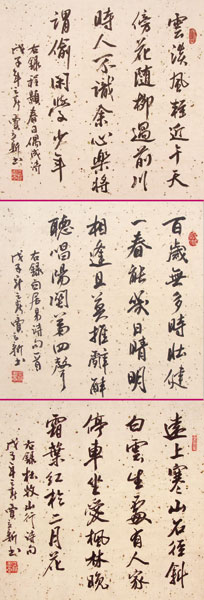 雲淡風輕近午天
傍花隨柳過前川
時人不識余心樂將
謂偷閑學少年
右錄程顥春日偶成詩
百歲無多時壯健
一春能幾日晴明
相逢且莫推辭醉
聽唱陽關第四聲
右錄白居易詩句一首
遠上寒山石徑斜
白雲生處有人家
停車坐愛楓林晚
霜葉紅於二月花
右錄杜牧山行詩句